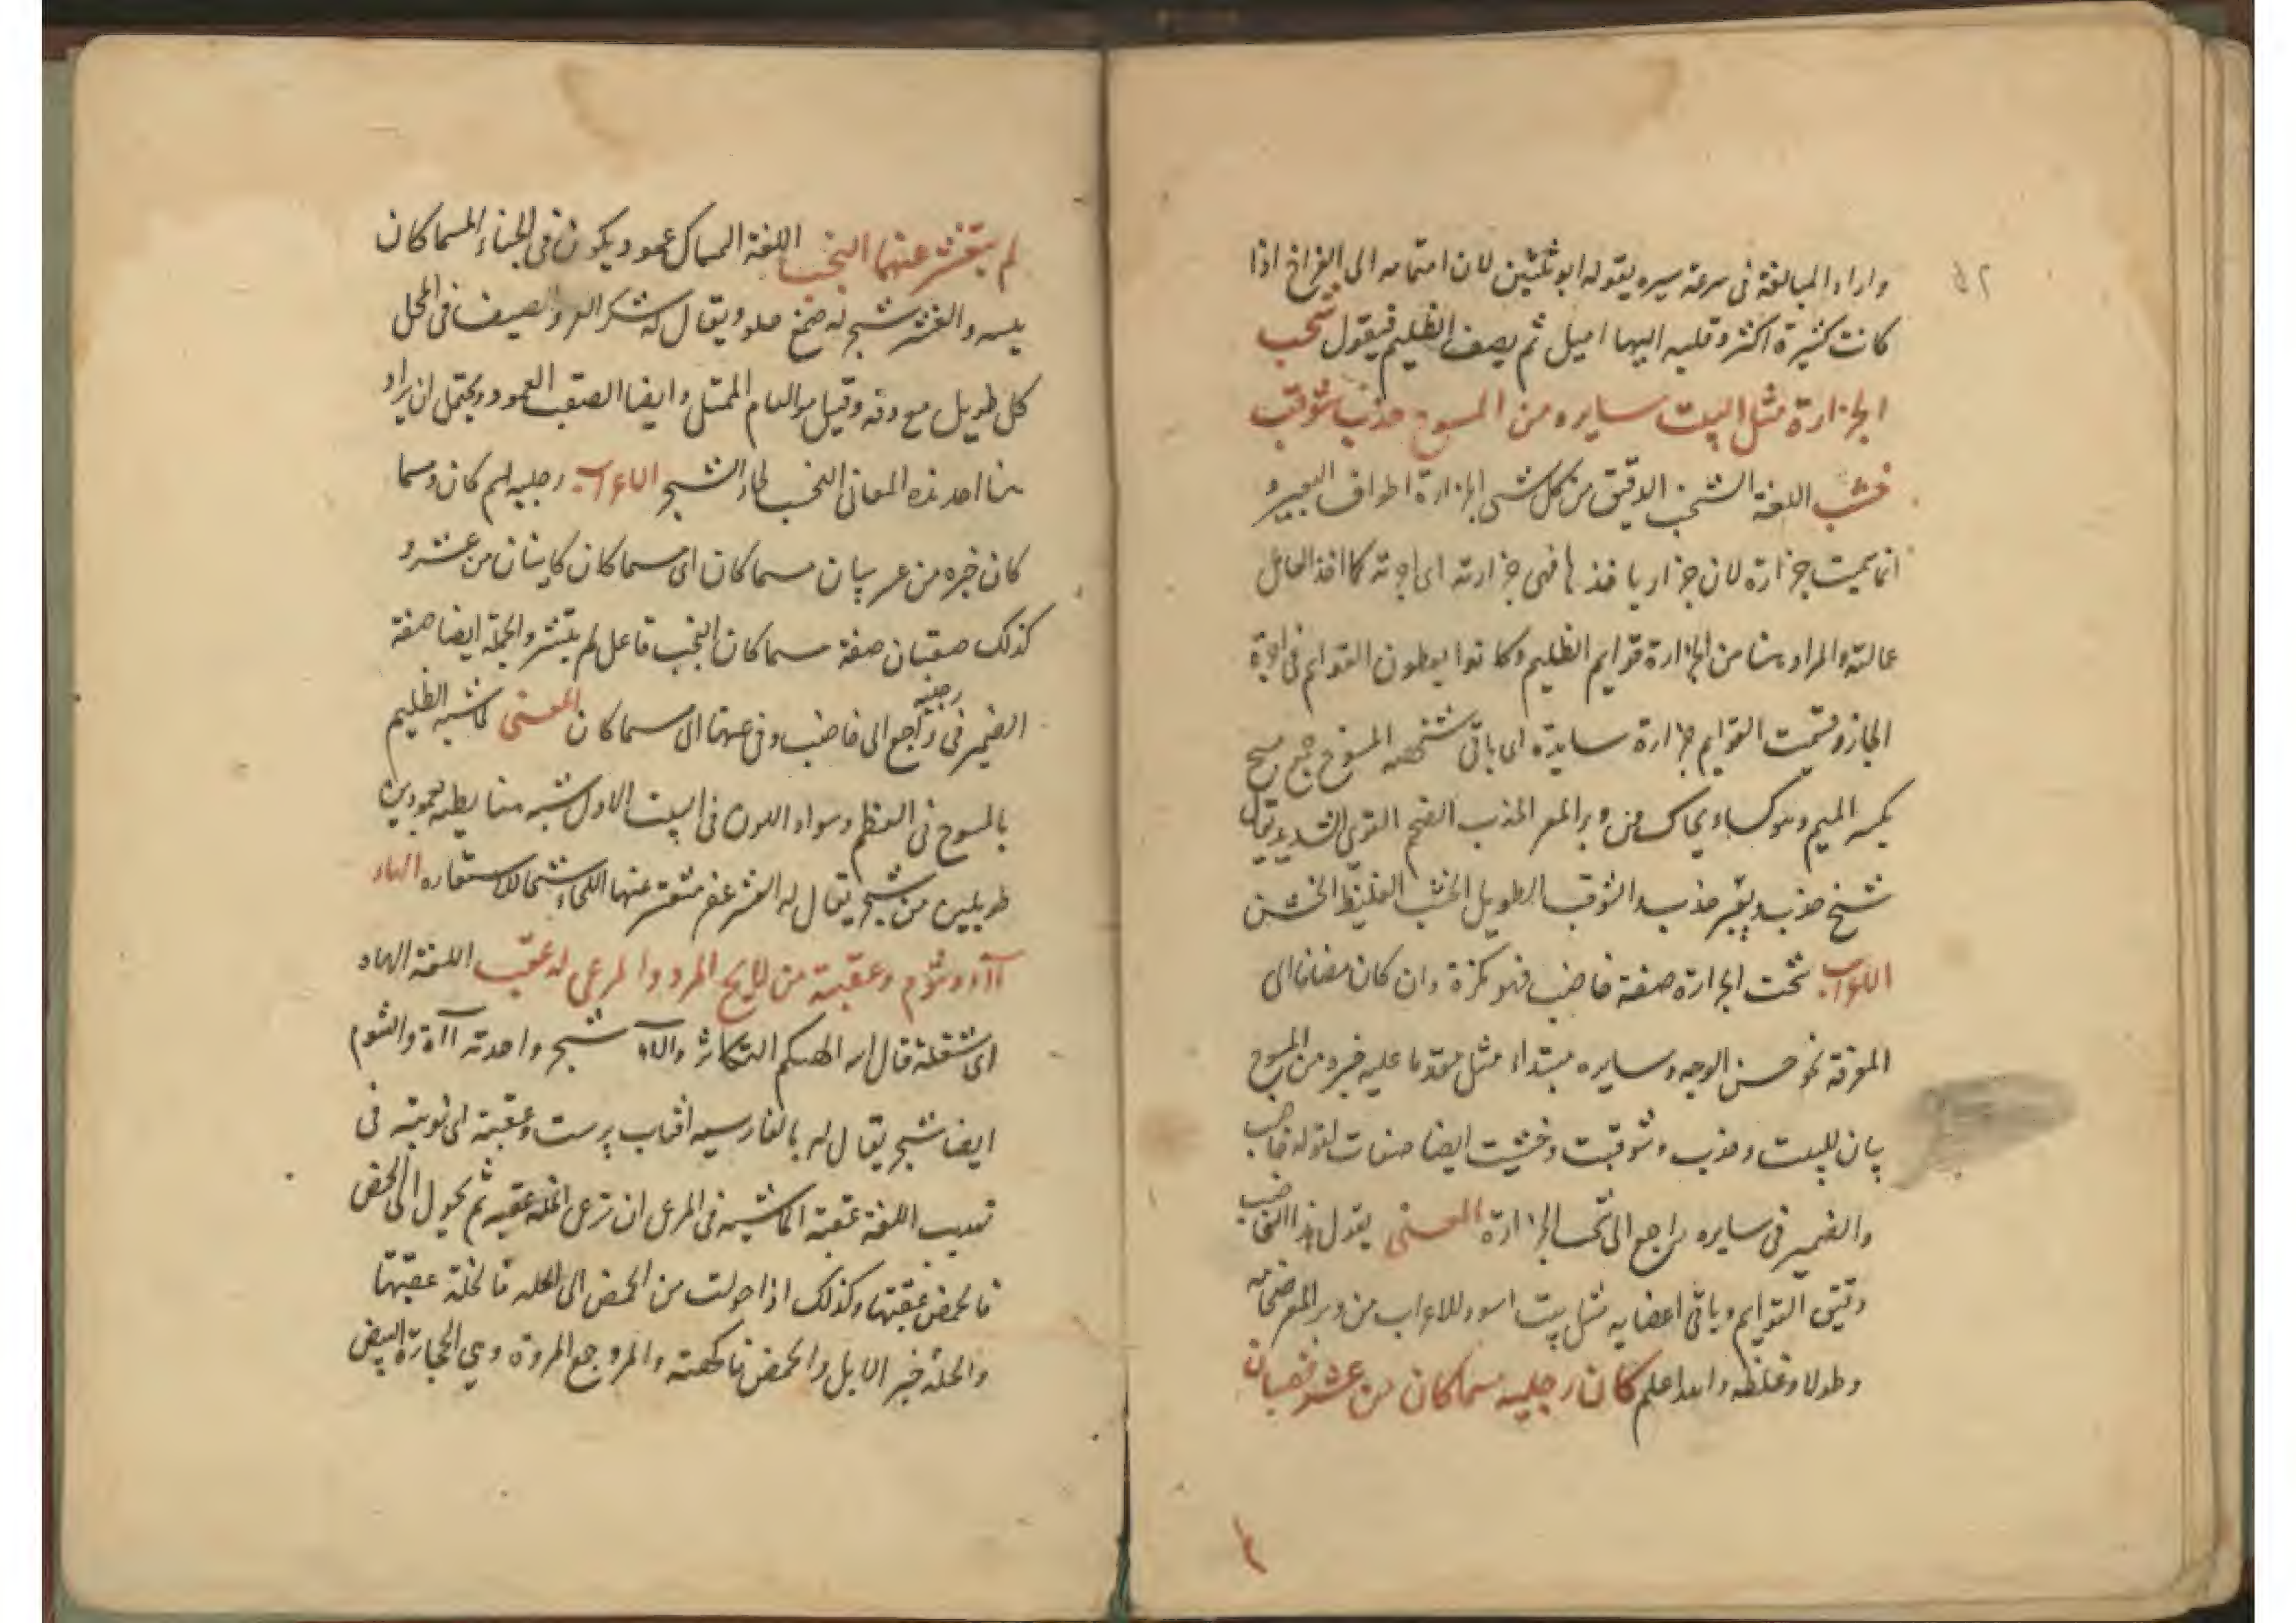 ٥٢
واراد المبالغة فى سرعة سيره بقوله ابو ثلثين لان اهتمامه الى الفراخ اذا
كانت كثيرة اكثر وقلبه اليها اميل ثم يصف الظليم فيقول شخت
الجزارة مثل البيت سايره من المسوح خدب شوقب
خشب اللغة الشخت الدقيق من كل شى الجزارة اطراف البعير و
انما سميت جزارة لان جزار ياخذها فهى جزارته اى اجرته كما اخذ العامل
عمالته والمراد هنا من الجزارة قوايم الظليم وكانوا يعطون القوايم فى اجرة
الجازر فسميت القوايم جزارة سايره اى باقى شخصه المسوح جمع مسح
بكسر الميم وهو كساء يحاك من وبر المعز الخدب الضخم القوى الشديد يقال
شيخ خدب وبعير خدب الشوقب الطويل الخشب الغليظ الخشن
الاعراب شخت الجزارة صفة خاضب فهو نكرة وان كان مضافا الى
المعرفة نحو حسن الوجه وسايره مبتداء مثل مقدما عليه خبره من المسوح
بيان للبيت وخدب وشوقب وخشب ايضا صفات لقوله خاضب
والضمير فى سايره راجع الى شخت الجزارة المعنى يقول هذا الخاضب
دقيق القوايم وباقى اعضايه مثل بيت اسود للاعراب من وبر المعز ضخامة
وطولا وغلظه والله اعلم كان رجليه مسماكان من عشر صقبان
لم يتقشر عنهما النجب اللغة المسماك عمود يكون فى الخباء المسماكان
والعشر شجر له صمغ حلو ويقال له سكر العشر والصقب فى المحل
كل طويل مع دقه وقيل هو الممتلى وايضا الصقب العمود ويحتمل ان يراد
هنا احد هذه المعانى النجب لحاء الشجر الاعراب رجليه اسم كان ومسما
كان خبره من عشر بيان مسماكان اى مسماكان كاينان من عشر و
كذلك صقبان صفة مسماكان النجب فاعل لم يتقشر والجملة ايضا صفة
الضمير فى رجليه راجع الى خاضب وفى عنهما الى مسماكان المعنى لما شبه الظليم
بالمسوح فى العظم وسواد اللون فى البيت الاول شبه هنا بعمودين
طويلين من شجر يقال له العشر غير متقشر عنهما اللحاء الهاه
آاء وتنوم وعقبته من لايح المرو والمرعى له عقب اللغة الهاه
اى شغله قال الله الهيكم التكاثر والآء شجر واحدته آاة والتنوم
ايضا شجر يقال له بالفارسيه افتاب پرست وعقبته اى نوبته فى
تهذيب اللغة عقبة الماشيه فى المرعى ان ترعى الخلة عقبه ثم يحول الى الحمض
فالحمض عقبتها وكذلك اذا حولت من الحمض الى الخله فالخلة عقبتها
والخلة خبز الابل والحمض فاكهته والمرو جمع المروة وهى الحجارة البيض